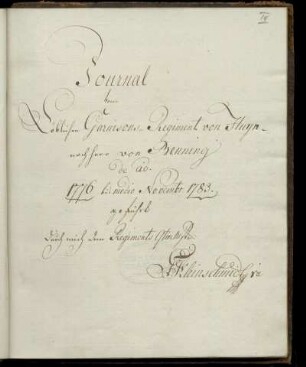 IV
Journal
vom
Löblichen Garnisons-Regiment von Huyn
nachher von Benning
de ao.
1776 bis medio Novembr 1783.
geführt
durch mich den Regiments
Kleinschmidt